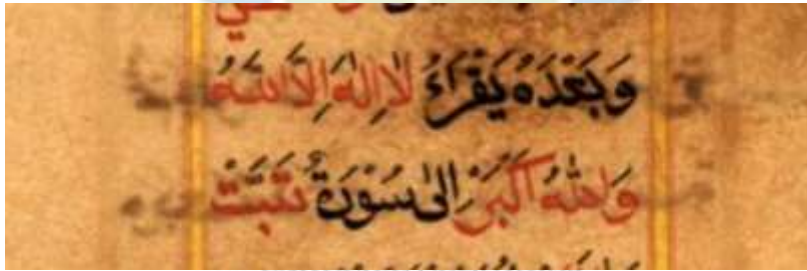 وَبَعْدَهُ يَقْرَاءُ لَا اِلٰهَ اِلَّا اللّٰهُ
وَاللّٰهُ اَكْبَرُ اِلٰى سُوْرَةِ تَبَّتْ